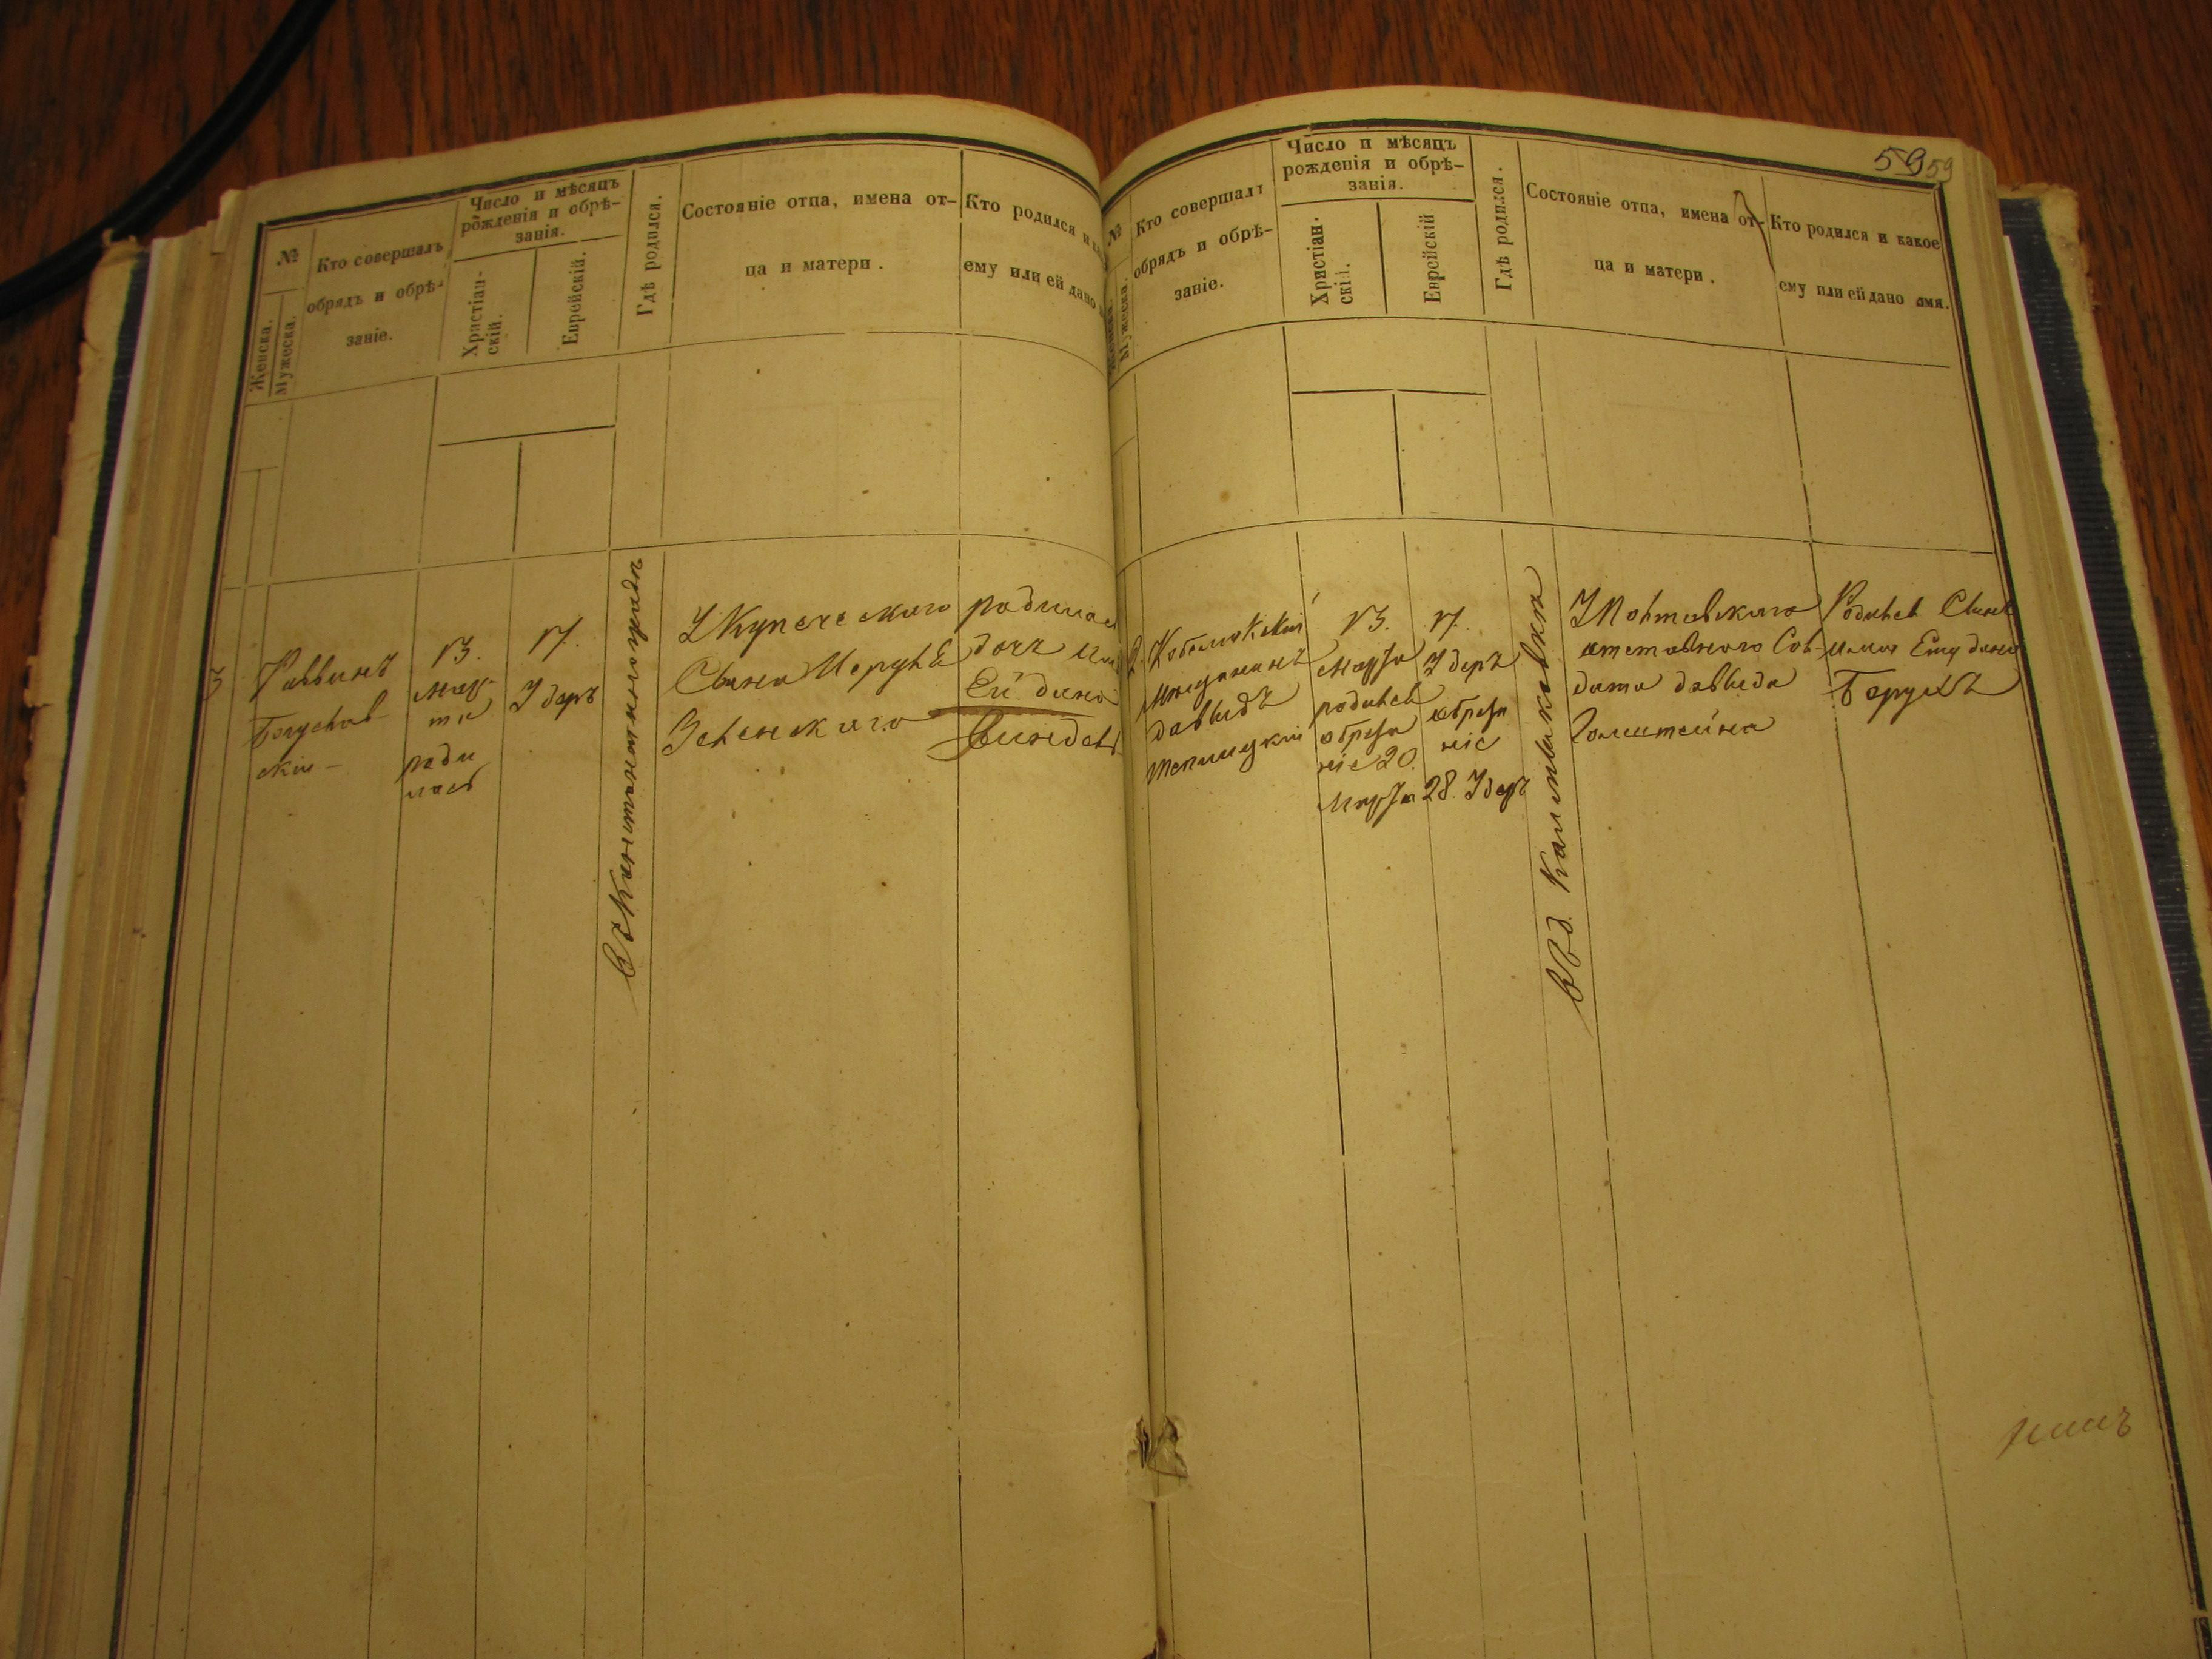 №
Женска.
Мужеска.
Кто совершалъ
обрядъ и обрѣ-
заніе.
Число и мѣсяцъ
рожденія и обрѣ-
занія.
Христіан-
скій.
Еврейскій.
Гдѣ родился.
Состояніе отца, имена от-
ца и матери.
Кто родился и
ему или ей дано
3
Раввинъ
Богуслав-
скій
13.
мар-
та
роди
лась
17.
Адаръ
В Константиноградѣ
У Купеческаго
Сына
Зеленскаго
родилась
дочь
Ей дано
59 59
№
Женска.
Мужеска.
Кто совершалъ
обрядъ и обрѣ-
заніе.
Число и мѣсяцъ
рожденія и обрѣ-
занія.
Христіан-
скій.
Еврейскій
Гдѣ родился.
Состояніе отца, имена от-
ца и матери.
Кто родился и какое
ему или ей дано имя.
Кобелякскій
мещанинъ
давыдъ
Теплицкій
13.
марта
родился
обреза
ніе 20
марта
17.
Адаръ
обреза
ніе
28. Адаръ
У Полтавскаго
отставнаго Сол-
дата давыда
Голштейна
Родился Сынъ
имя Ему дано
Борухъ